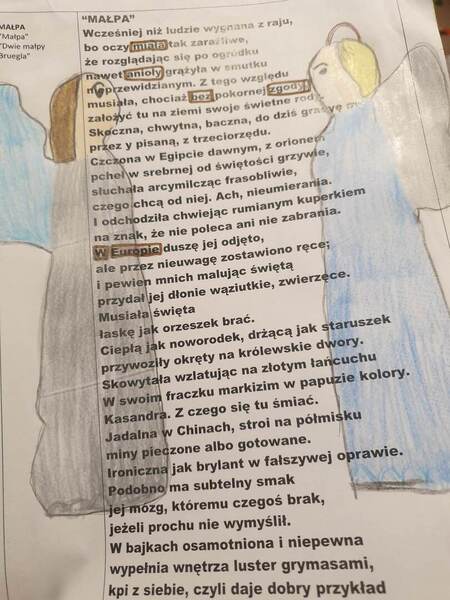 MAŁPA
"Małpa"
"Dwie małpy
Bruegla"
"MAŁPA"
Wcześniej niż ludzie wygnana z raju,
bo oczy miała tak zaraźliwe,
że rozglądając się po ogródku
nawet anioły grążyła w smutku
nieprzewidzianym. Z tego względu
musiała, chociaż bez pokornej zgody,
założyć tu na ziemi swoje świetne
Skoczna, chwytna, baczna, do dziś
przez y pisaną, z trzeciorzędu.
Czczona w Egipcie dawnym, z orionem
pcheł w srebrnej od świętości grzywie,
słuchała arcymilcząc frasobliwie,
czego chcą od niej. Ach, nieumierania.
I odchodziła chwiejąc rumianym kuperkiem
na znak, że nie poleca ani nie zabrania.
W Europie duszę jej odjęto,
ale przez nieuwagę zostawiono ręce;
i pewien mnich malując świętą
przydał jej dłonie wąziutkie, zwierzęce.
Musiała święta
łaskę jak orzeszek brać.
Ciepłą jak noworodek, drżącą jak staruszek
przywoziły okręty na królewskie dwory.
Skowytała wzlatując na złotym łańcuchu
W swoim fraczku markizim w papuzie kolory.
Kasandra. Z czego się tu śmiać.
Jadalna w Chinach, stroi na półmisku
miny pieczone albo gotowane.
Ironiczna jak brylant w fałszywej oprawie.
Podobno ma subtelny smak
jej mózg, któremu czegoś brak,
jeżeli prochu nie wymyślił.
W bajkach osamotniona i niepewna
wypełnia wnętrza luster grymasami,
kpi z siebie, czyli daje dobry przykład